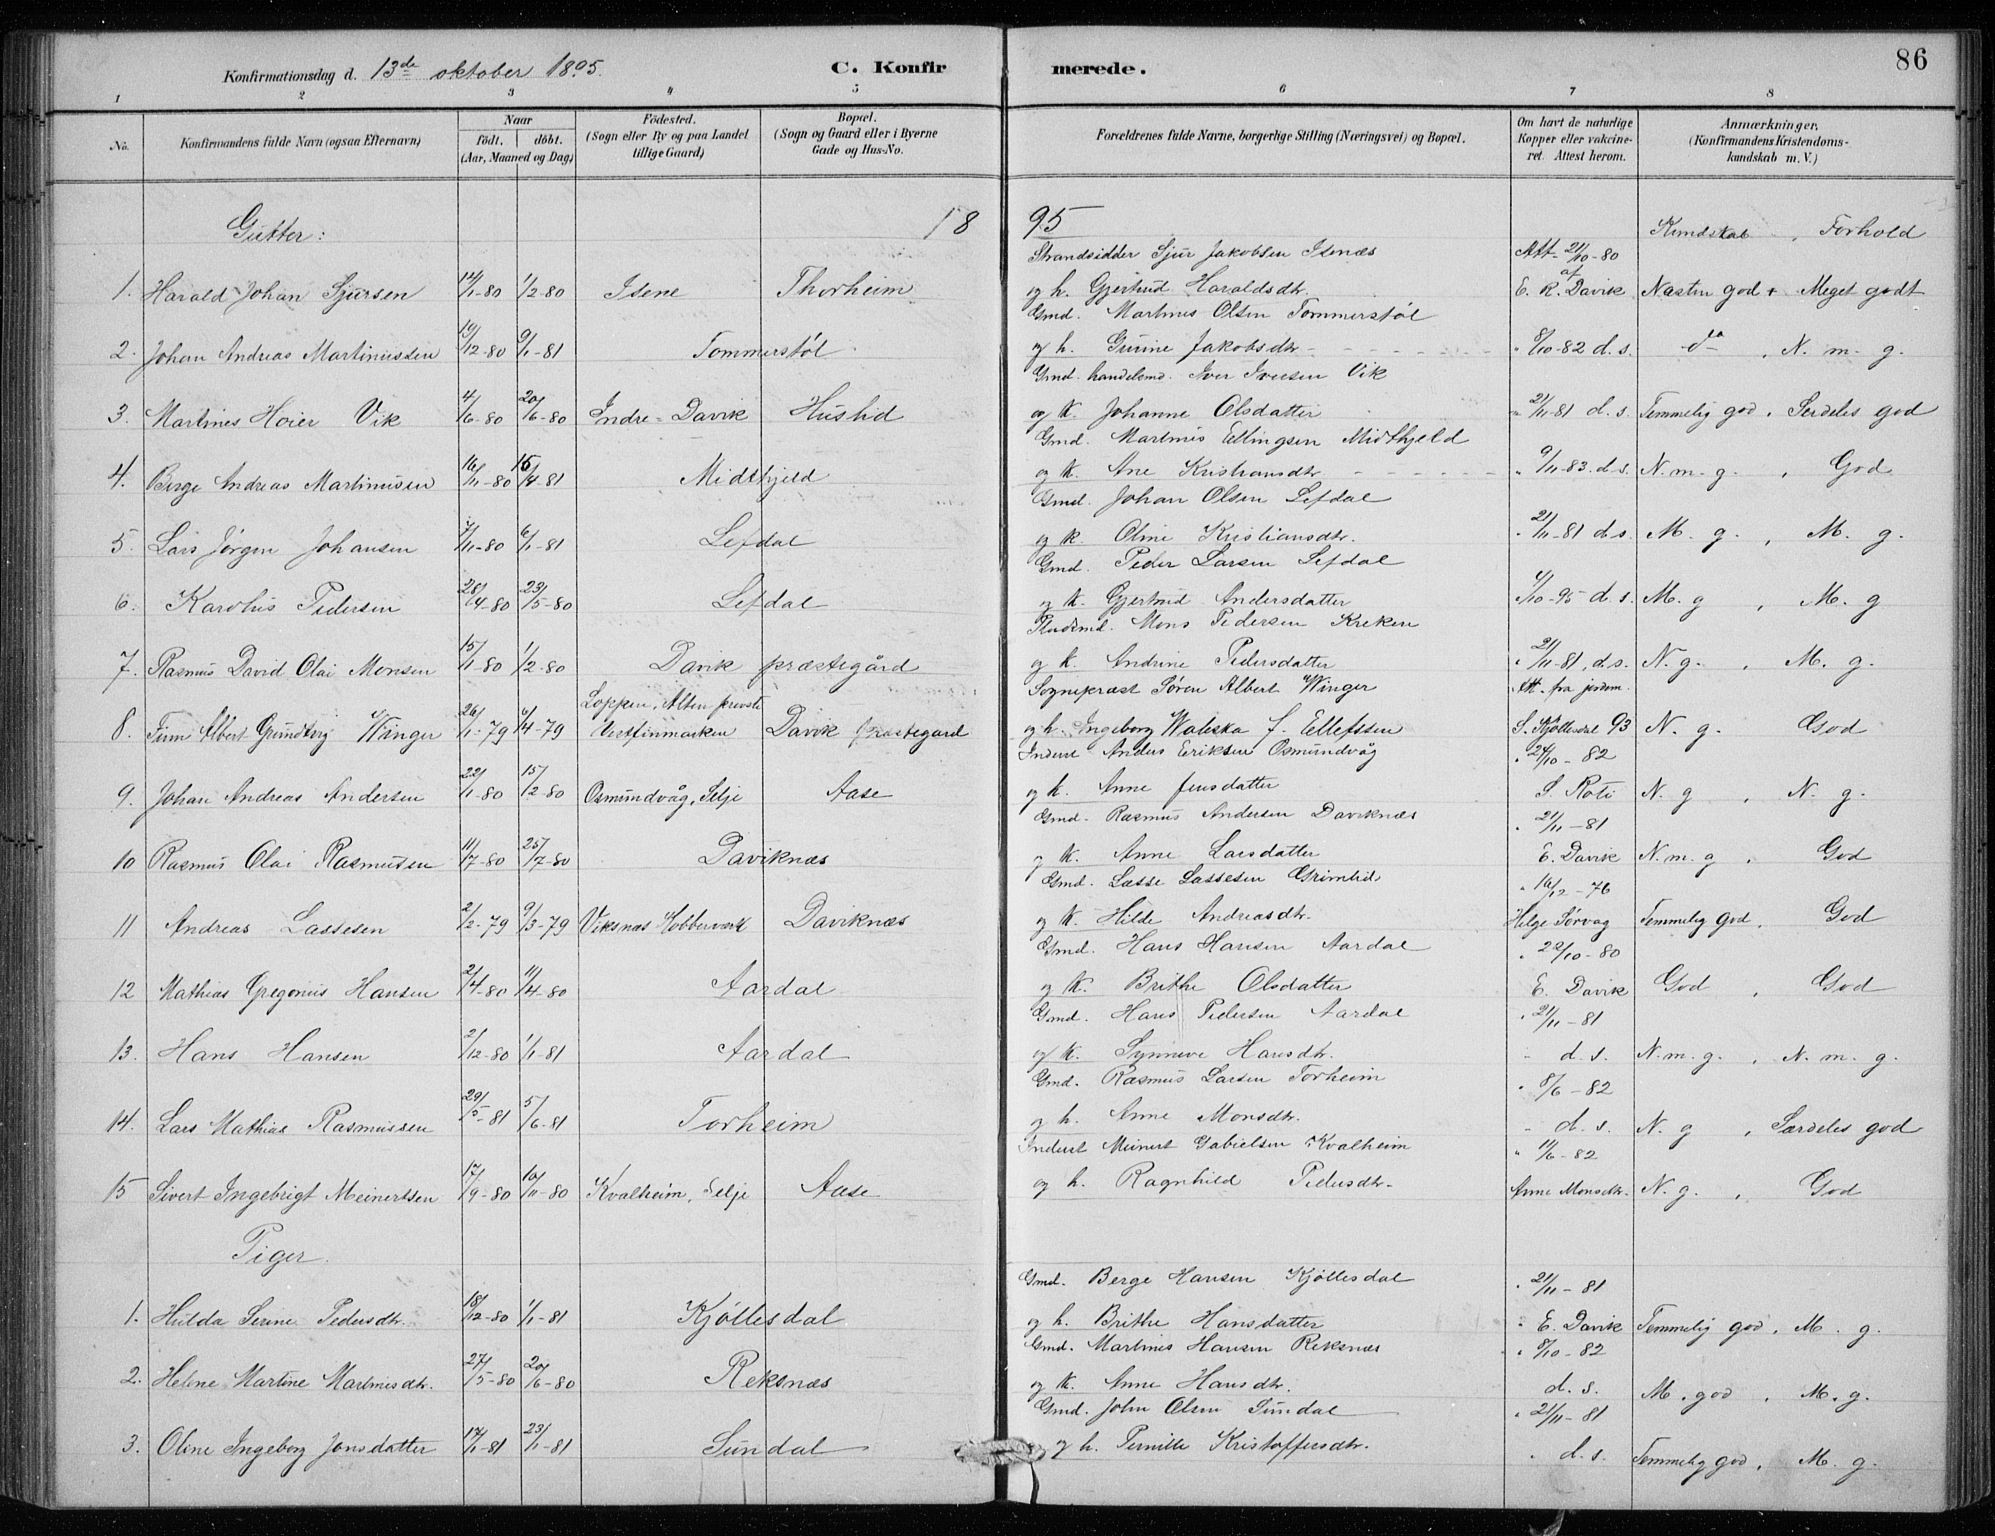 Konfirmationsdag d. 13de oktober 1895. C. Konfirmerede. 86
1 2 3 4 5 6 7 8
No. Konfirmandens fulde Navn (ogsaa Efternavn) Naar födt. döbt. (Aar, Maaned og Dag) Födested. (Sogn eller By og paa Landet tillige Gaard) Bopæl. (Sogn og Gaard eller i Byerne Gade og Hus-No. Forældrenes fulde Navne, borgerlige Stilling (Næringsvei) og Bopæl. Om havt de naturlige Kopper eller vakcineret. Attest herom. Anmærkninger. (Konfirmandens Kristendomskundskab m. V.)
Gutter: 18 95 Kundskab, Forhold
Strandsidder Sjur Jakobsen Isenæs Att. 21/10-80
1. Harald Johan Sjursen 12/1-80 1/2-80 Isene Thorheim og h. Gjertrud Haraldsdtr. af E. R. Davik Næsten god, Meget godt
Gmd. Martines Olsen Tommerstøl
2. Johan Andreas Martinussen 19/12-80 9/1-81 Tommerstøl og h. Gurine Jakobsdtr. " 8/10-82 d. s. do, N. m. g.
Gmd. handelsmd. Iver Iversen Vik
3. Martines Hoier Vik 4/6-80 20/6-80 Indre-Davik Huslid og k. Johanne Olsdatter " 21/11-81 d. s. Temmelig god, Serdeles god
Gmd. Martines Ellingsen Midthjeld
4. Berge Andreas Martinusen 16/11-80 15/4-81 Midthjeld og k. Ane Kristiansdtr. " 9/11-83. d. s. N. m. g., God
Gmd. Johan Olsen Lefdal
5. Lars Jørgen Johansen 7/11-80 6/1-81 Lefdal og k Oline Kristiansdtr. " 21/11-81 d. s. M. g., M. g.
Gmd. Peder Larsen Lefdal
6. Karolus Pedersen 28/4-80 23/5-80 Lefdal og k. Gjertrud Andersdatter 4/10-95 d. s. M. g, M. g
Pladsmd. Mons Pedersen Kreken
7. Rasmus David Olai Monsen 15/1-80 1/2-80 Davik præstegård og k. Andrine Pedersdatter " 21/11-81, d. s. N. g., M. g.
Loppen, Alten provsti Sognepræst Søren Albert Winger Att. fra jordem.
8. Finn Albert Grundtvig Winger 26/1-79 6/4-79 Vestfinmarken Davik præstegard og h. Ingeborg Waleska f. Ellefssen S. Kjöllesdl 93 N. g. God
Inderst Anders Eriksen Osmundvåg " 24/10-82
9. Johan Andreas Andersen 22/1-80 15/2-80 Osmundvåg, Selje Aase og h. Anne Jensdatter S. Roti N. g, N. g.
Gmd. Rasmus Andersen Daviknæs " 21/11-81
10 Rasmus Olai Rasmusen 11/7-80 25/7-80 Daviknæs og k. Anne Larsdatter E. Davik N. m. g, God
Gmd. Lasse Lassesen Grimelid " 16/12-76
11 Andreas Lassesen 2/2-79 9/3-79 Viksnæs Kobberverk Daviknæs og k. Hilde Andreasdtr. Helge Sørvag Temmelig god, God
Gmd. Hans Hansen Aardal " 22/10-80
12 Mathias Gregorius Hansen 2/4-80 11/4-80 Aardal og k. Brithe Olsdatter E. Davik God, God
Gmd. Hans Pedersen Aardal " 21/11-81
13. Hans Hansen 2/12-80 1/1-81 Aardal og k. Synneve Hansdtr. " d. s. N. m. g., N. m. g.
Gmd. Rasmus Larsen Torheim " 8/6-82
14. Lars Mathias Rasmussen 29/5-81 5/6-81 Torheim og h. Anne Monsdtr. " d. s. N. g, Særdeles god
Inderst Meinert Gabielsen Kvalheim " 11/6-82
15 Sivert Ingebrigt Meinertsen 17/9-80 10/11-80 Kvalheim, Selje Aase og h. Ragnhild Pedersdtr. Anne Monsdtr. N. g., God
Piger.
Gmd. Berge Hansen Kjöllesdal " 21/11-81
1. Hulda Serine Pedersdtr. 18/12-80 1/1-81 Kjöllesdal og h. Brithe Hansdatter " E. Davik Temmelig god, M. g.
Gmd. Martines Hansen Reksnæs " 8/10-82
2. Helene Martine Martinesdtr. 27/5-80 20/6-80 Reksnæs og k. Anne Hansdtr. d. s. M. god, M. g.
Gmd. John Olsen Sundal " 21/11-81
3. Oline Ingeborg Jonsdatter 17/1-81 23/1-81 Sundal og h. Pernille Kristoffersdtr. " d. s. Temmelig god, M. g.